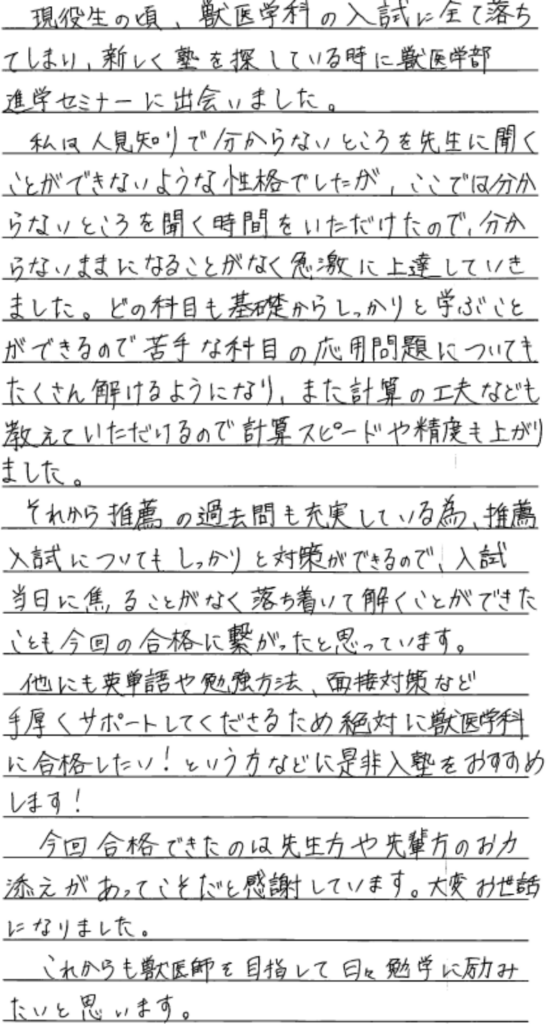 現役生の頃、獣医学科の入試に全て落ち
てしまい、新しく塾を探している時に獣医学部
進学セミナーに出会いました。
私は人見知りで分からないところを先生に聞く
ことができないような性格でしたが、ここでは分か
らないところを聞く時間をいただけたので、分か
らないままになることがなく急激に上達していき
ました。どの科目も基礎からしっかりと学ぶこと
ができるので苦手な科目の応用問題についても
たくさん解けるようになり、また計算の工夫なども
教えていただけるので計算スピードや精度も上がり
ました。
それから推薦の過去問も充実している為、推薦
入試についてもしっかりと対策ができるので、入試
当日に焦ることがなく落ち着いて解くことができた
ことも今回の合格に繋がったと思っています。
他にも英単語や勉強方法、面接対策など
手厚くサポートしてくださるため絶対に獣医学科
に合格したい!という方などに是非入塾をおすすめ
します!
今回合格できたのは先生方や先輩方のお力
添えがあってこそだと感謝しています。大変お世話
になりました。
これからも獣医師を目指して日々勉学に励み
たいと思います。